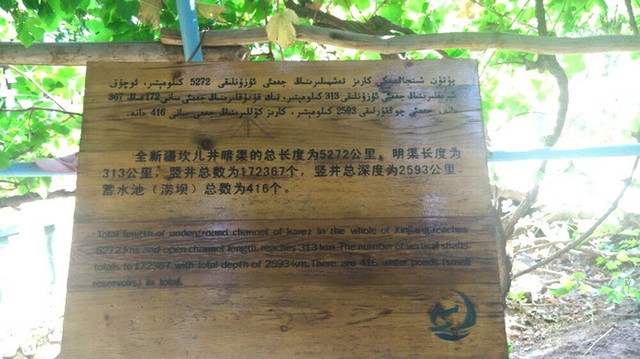 پۈتۈن شىنجاڭدىكى كارىز نەشمىلىرىنىڭ جەمئىي ئۇزۇنلۇقى 5272 كىلومېتىر، ئوچۇق
ئۇزۇنلۇقى 313 كىلومېتىر، تىك قۇدۇقلىرىنىڭ جەمئىي سانى 172 مىڭ 367
جەمئىي چوڭقۇرلۇقى 2593 كىلومېتىر، كارىز كۆللىرىنىڭ جەمئىي سانى 416 دانە.
全新疆坎儿井暗渠的总长度为5272公里。明渠长度为
313公里，竖井总数为172367个，竖井总深度为2593公里
蓄水池（涝坝）总数为416个。
Total length of underground channel of karez in the whole of Xinjiang reaches
5272 km, and open channel length reaches 313 km. The number of vertical shafts
totals to 172367, with total depth of 2593 km. There are 416 water ponds (small
reservoirs) in total.